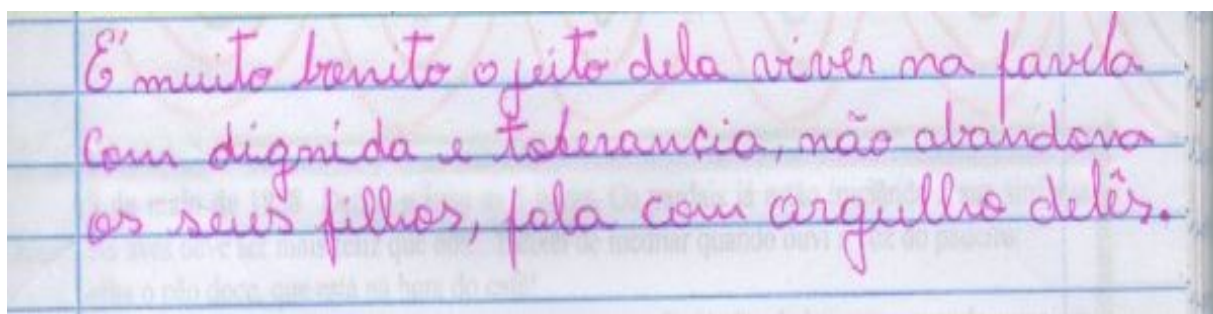 É muito bonito o jeito dela viver na favela
com dignida e tolerancia, não abandona
os seus filhos, fala com argulho delês.